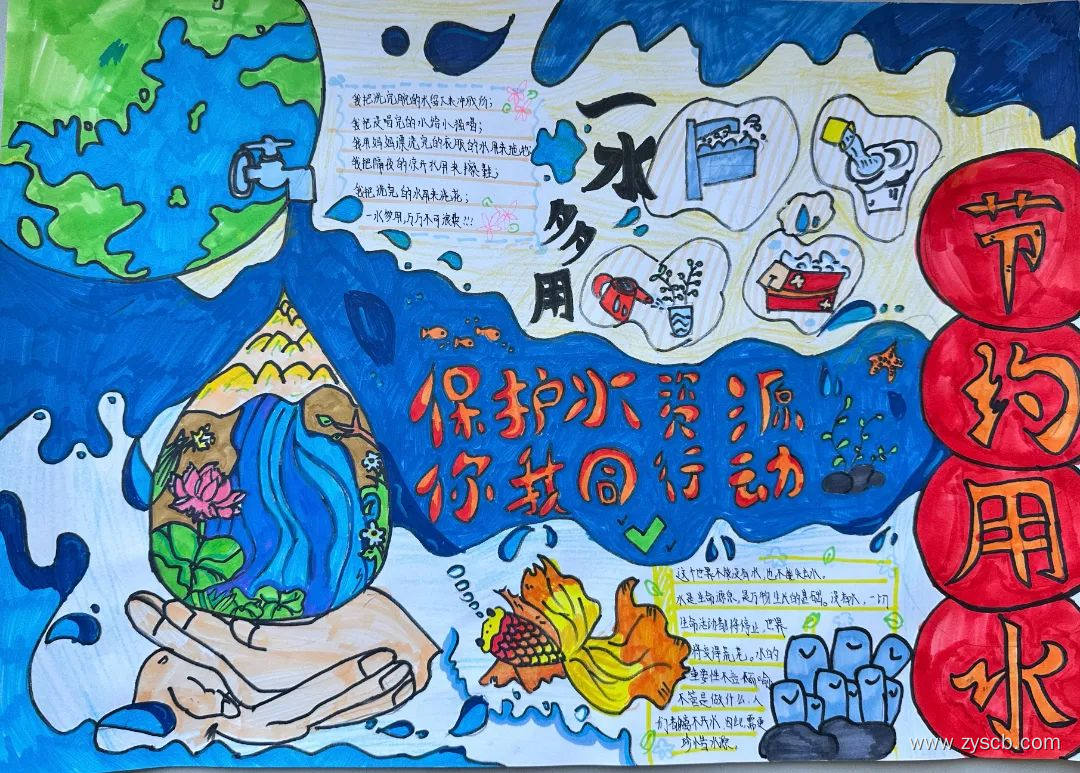 我把洗完脸的水留下来冲厕所；
我把没喝完的水给小猫喝；
我用妈妈漂洗完的衣服的水用来拖地；
我把隔夜的凉开水用来擦鞋；
我把洗完的水用来浇花；
一水多用，万万不可浪费!!!
一水多用
节约用水
保护水资源
你我同行动
这个世界不能没有水，也不能失去水。
水是生命源泉，是万物生长的基础。没有水，一切
生命活动都将停止，世界
将变得荒芜。水的
重要性不言而喻
不管是做什么，人
们都离不开水，因此，需更
珍惜水源。
www.zyscb.com